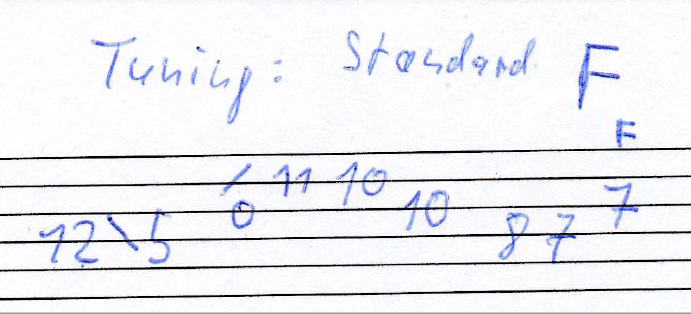 Tuning: Standard F
F
12\5 0 / 11 10 10 8 7 7